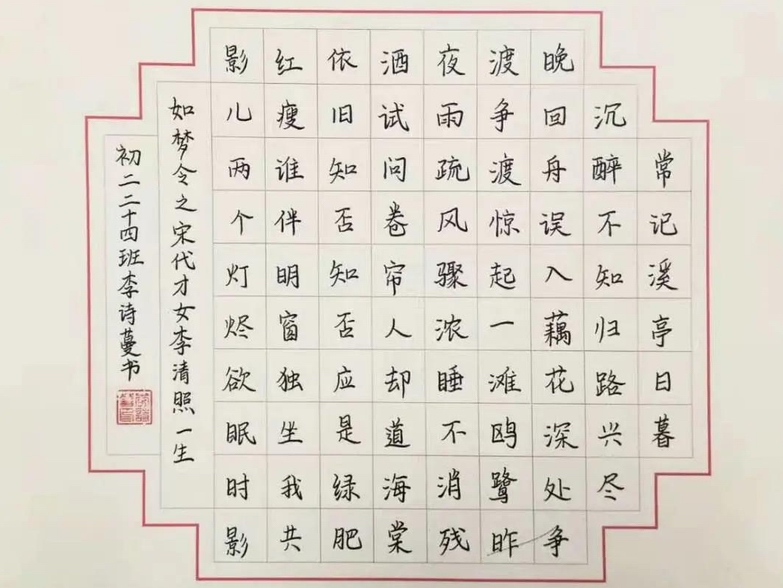 常记溪亭日暮
沉醉不知归路兴尽
晚回舟误入藕花深处争
渡争渡惊起一滩鸥鹭昨
夜雨疏风骤浓睡不消残
酒试问卷帘人却道海棠
依旧知否知否应是绿肥
红瘦谁伴明窗独坐我共
影儿两个灯烬欲眠时影
如梦令之宋代才女李清照一生
初二二十四班李诗蔓书